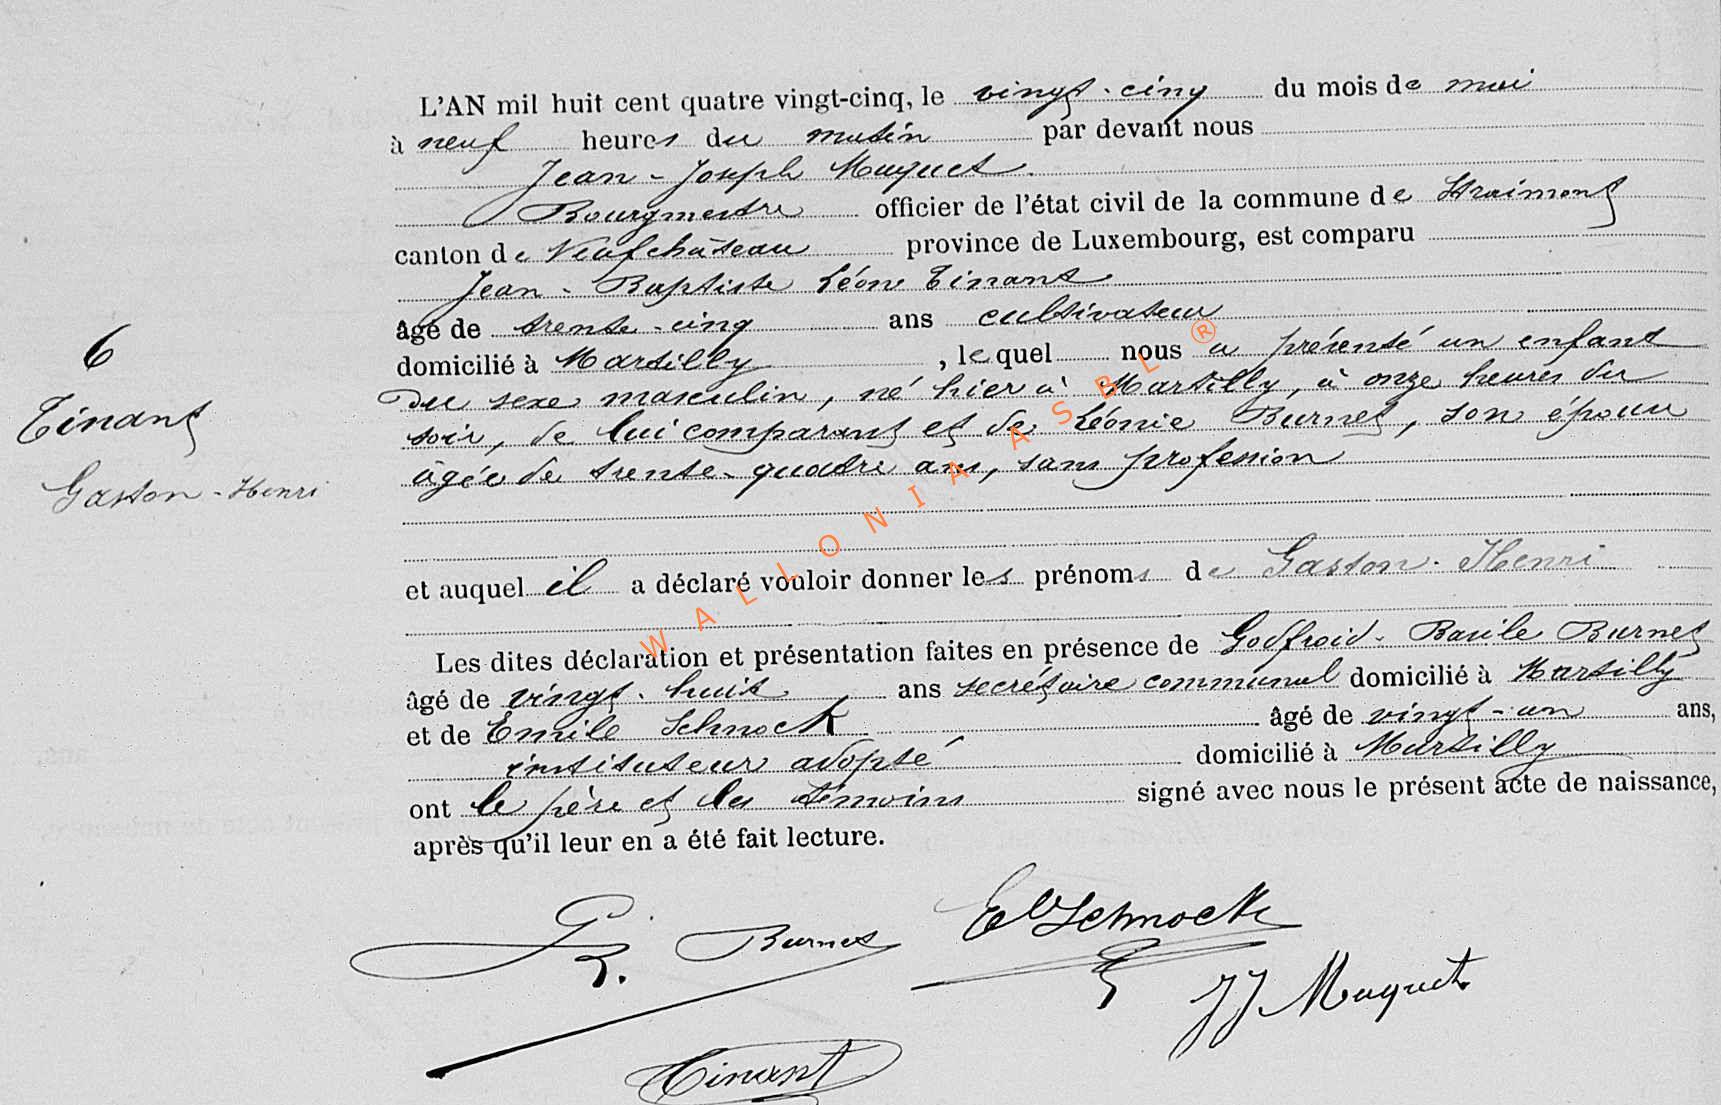 L'AN mil huit cent quatre vingt-cinq, le vingt-cinq du mois de mai
à neuf heures du matin par devant nous
Jean-Joseph Maquet
Bourgmestre officier de l'état civil de la commune de Straimont
canton de Neufchâteau province de Luxembourg, est comparu
Jean-Baptiste Léon Tinant
âgé de trente-cinq ans cultivateur
6
domicilié à Martilly, lequel nous a présenté un enfant
du sexe masculin, né hier à Martilly, à onze heures du
Tinant
soir, de lui comparant et de Léonie Burnet, son épouse
Gaston-Henri
âgée de trente-quatre ans, sans profession
et auquel il a déclaré vouloir donner les prénoms de Gaston-Henri
Les dites déclaration et présentation faites en présence de Godfroid-Basile Burnet
âgé de vingt-huit ans secrétaire communal domicilié à Martilly
et de Emile Schnock âgé de vingt-un ans,
instituteur adopté domicilié à Martilly
ont le père et les témoins signé avec nous le présent acte de naissance,
après qu'il leur en a été fait lecture.
Burnet
Schnock
JJ Maquet
Tinant
WALLONIA ASBL ®